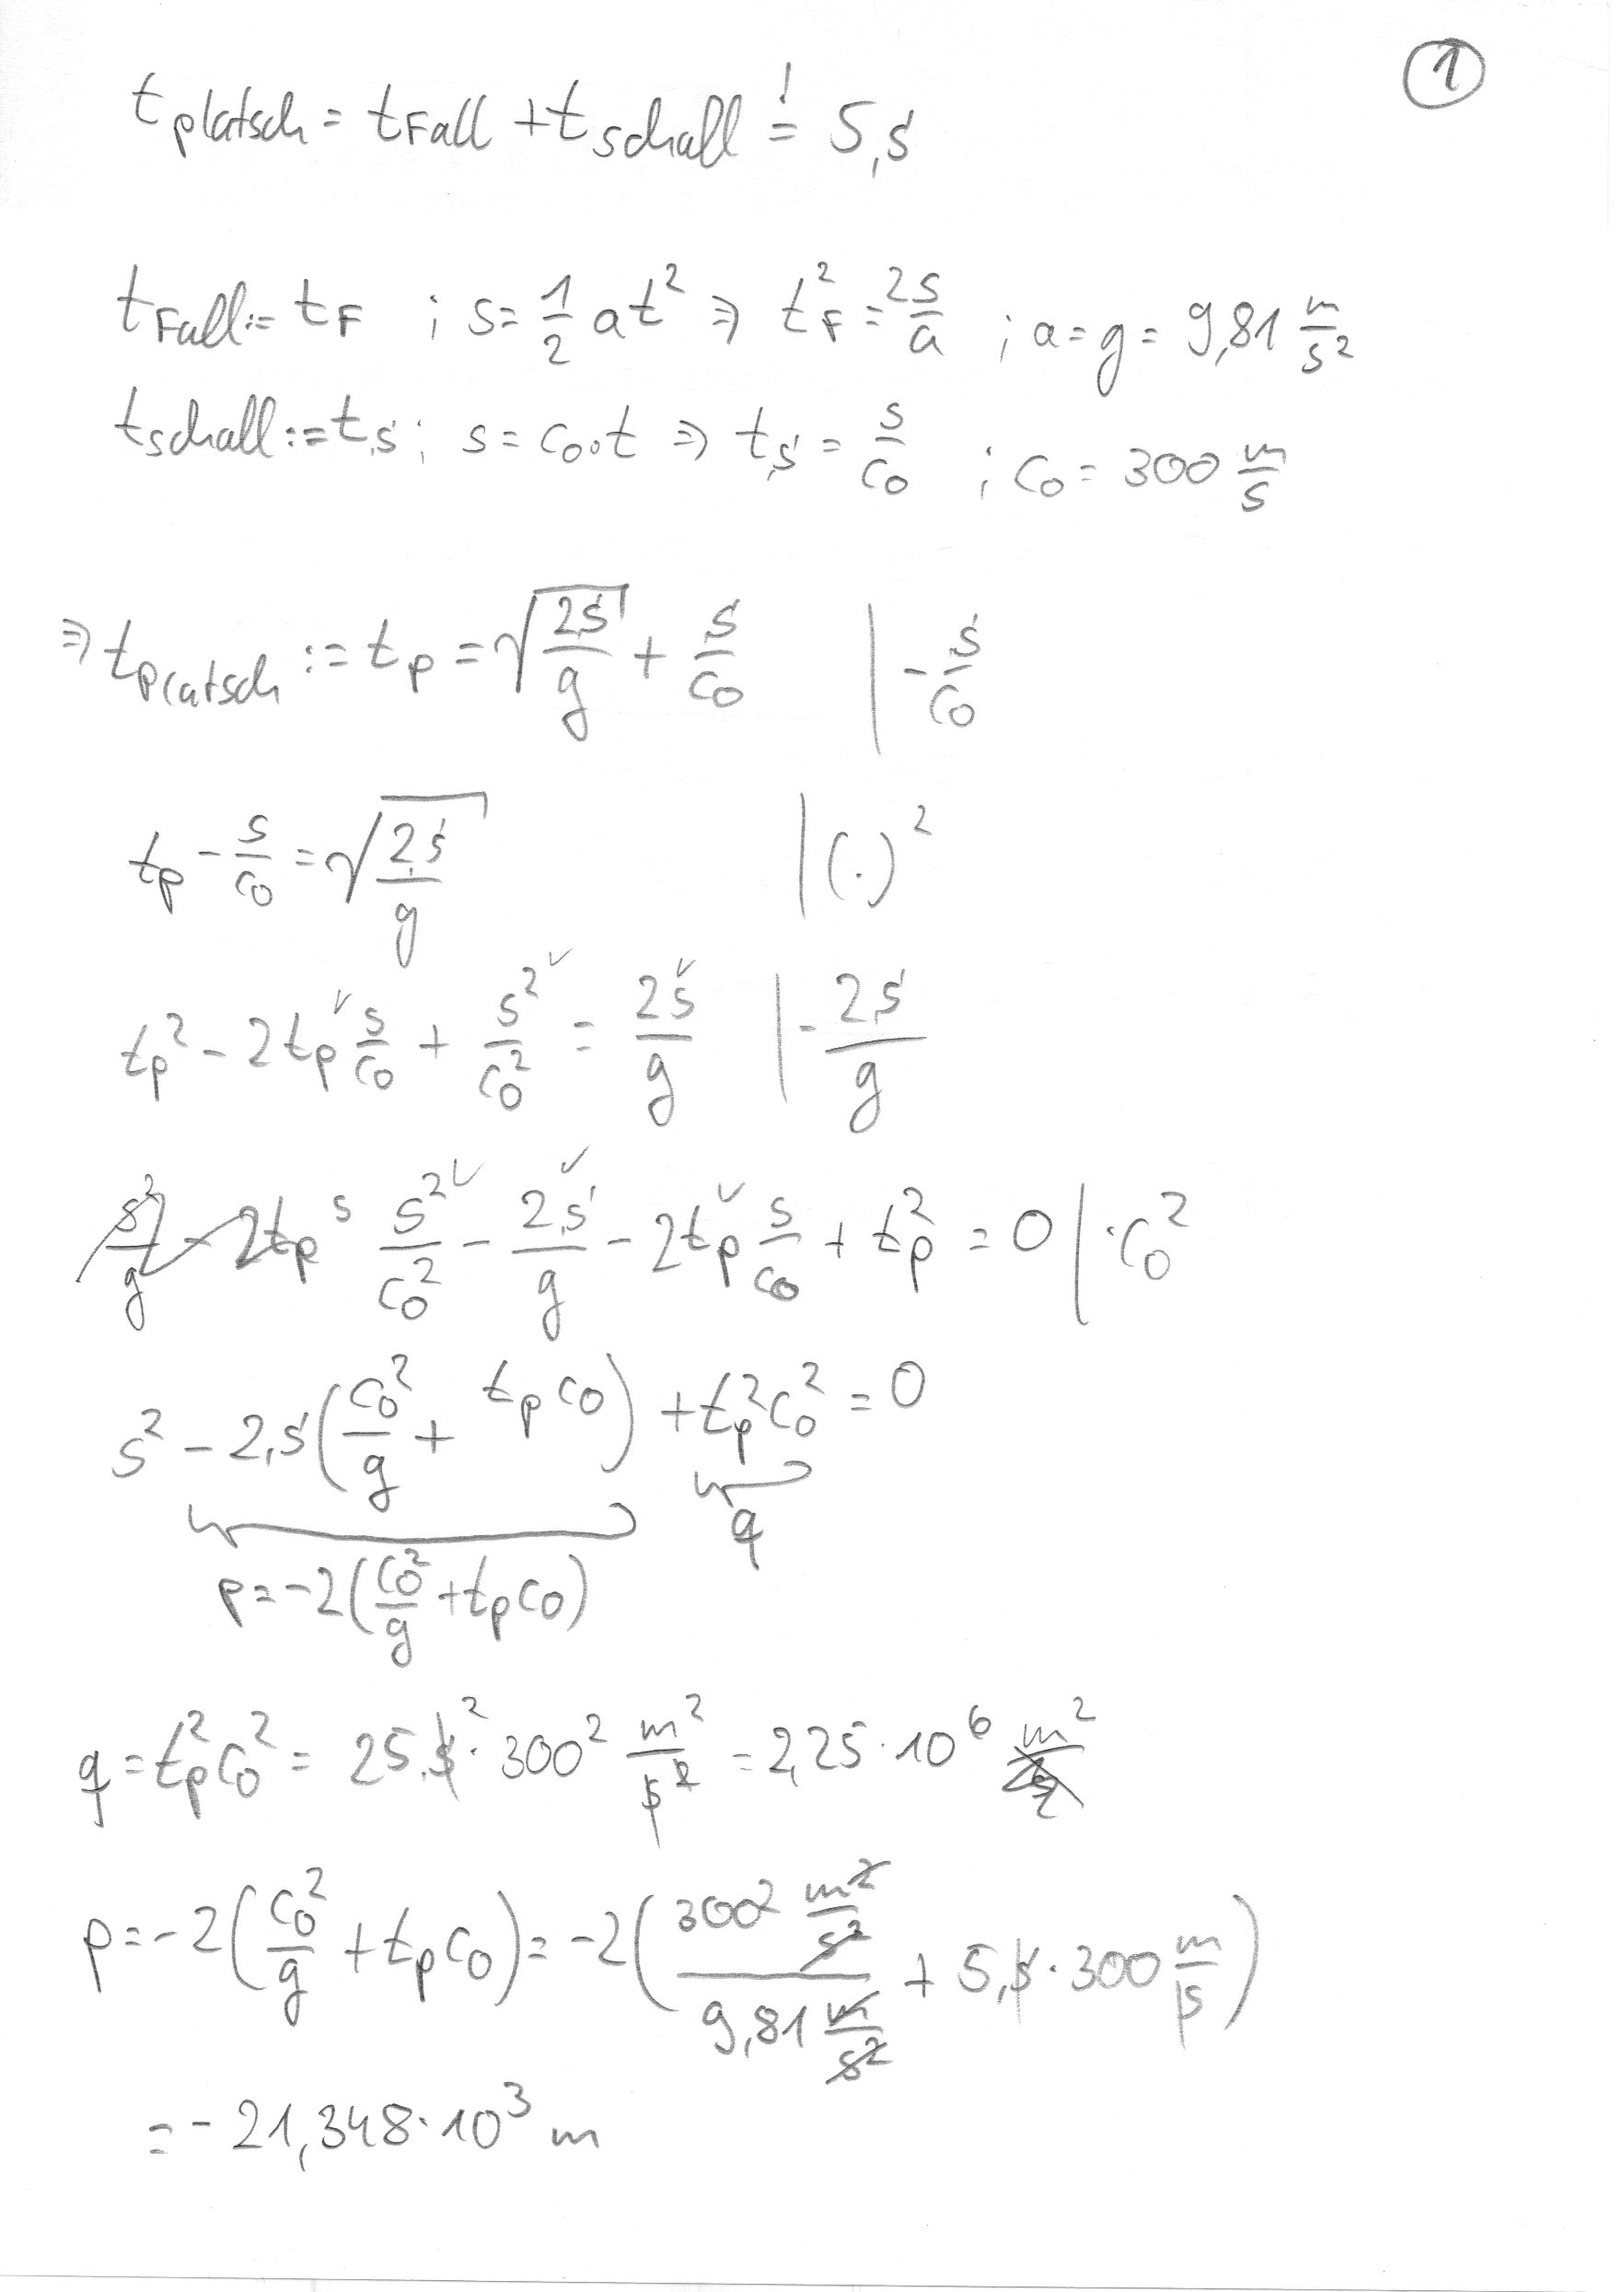 ①
t_platsch = t_Fall + t_schall =! 5 s
t_Fall := t_F ; s = 1/2 a t² ⇒ t_F² = 2s/a ; a = g = 9,81 m/s²
t_schall := t_s ; s = c₀·t ⇒ t_s = s/c₀ ; c₀ = 300 m/s
⇒ t_Platsch := t_p = √(2s/g) + s/c₀ | - s/c₀
t_p - s/c₀ = √(2s/g) | (.)²
t_p² - 2t_p s/c₀ + s²/c₀² = 2s/g | - 2s/g
s²/c₀² - 2s/g - 2t_p s/c₀ + t_p² = 0 | ·c₀²
s² - 2s(c₀²/g + t_p c₀) + t_p² c₀² = 0
q
p = -2(c₀²/g + t_p c₀)
q = t_p² c₀² = 25 s² · 300² m²/s² = 2,25 · 10⁶ m²
p = -2(c₀²/g + t_p c₀) = -2(300² m²/s² / 9,81 m/s² + 5 s · 300 m/s)
= - 21,348 · 10³ m